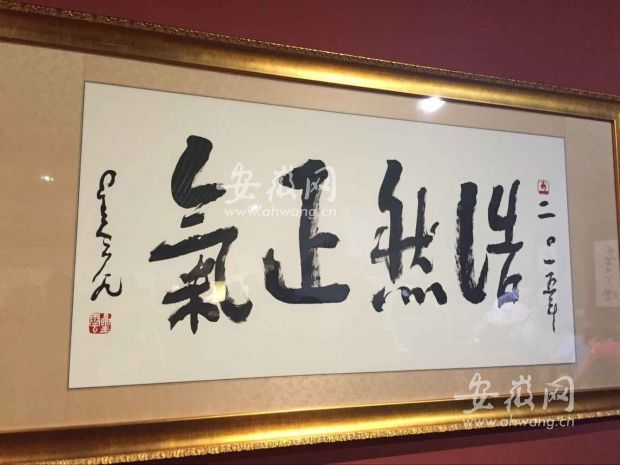 二〇一五年
浩然正氣
安徽网
www.ahwang.cn
安徽网
www.ahwang.cn